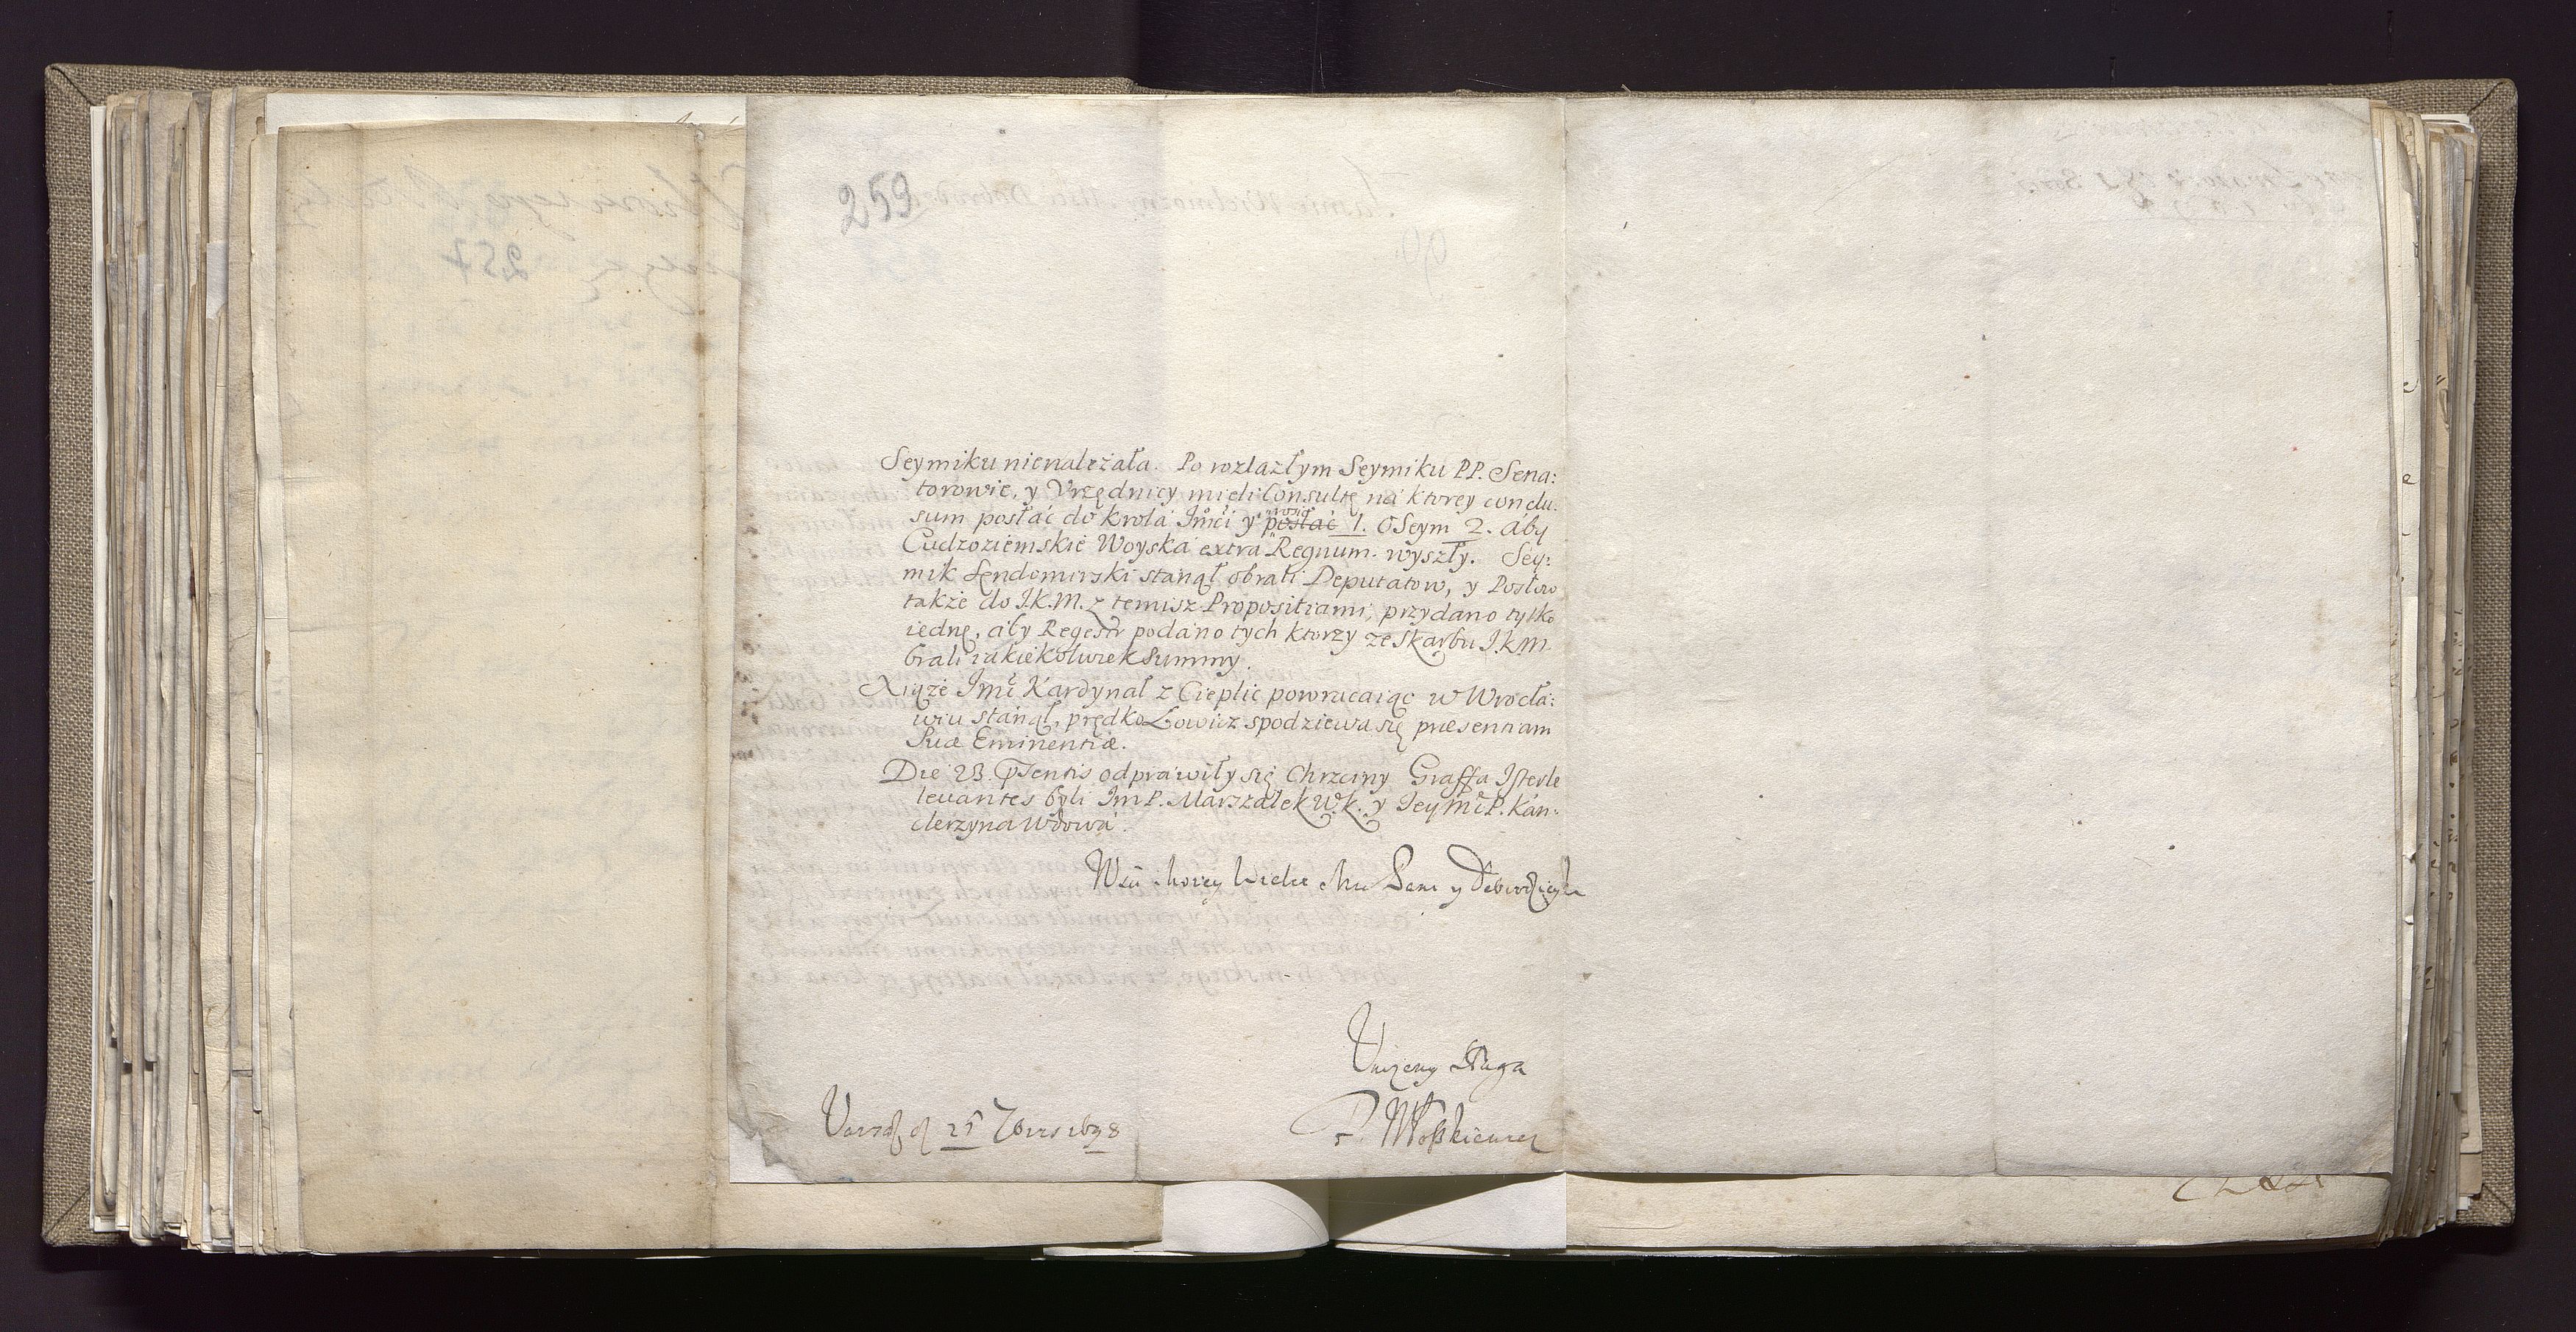 259
257
Seymiku nienależała. Po rozlazłym Seymiku PP. Sena:
torowie, y Vrzędnicy mieli Consultę na ktorey conclu.
sum posłać do Krola Imći y posłać 1. O Seym 2. aby
prosić
Cudzoziemskie Woyska extra Regnum. wyszły. Sey:
mik Sendomirski stanął obrali Deputatow, y Posłow
także do J.K.M. z temisz Propositiami, przydano tylko
iednę, aby Regestr podano tych ktorzy ze Skarbu J.K.M.
brali iakiekolwiek Summy.
Xiąże Imć Kardynał z Cieplic powracaiąc w Wrocła:
wiu stanął, prędko Łowicz spodziewa się præsentiam
Suæ Eminentiæ.
Die 23. præsentis odprawiły się Chrzciny Graffa Isterle
levantes byli Im P. Marszałek W. K. y Jey Mć P. Kan:
clerzyna Wdowa.
Pana y Dobrodzieja
Vniżony Sługa
25 7bris 1698